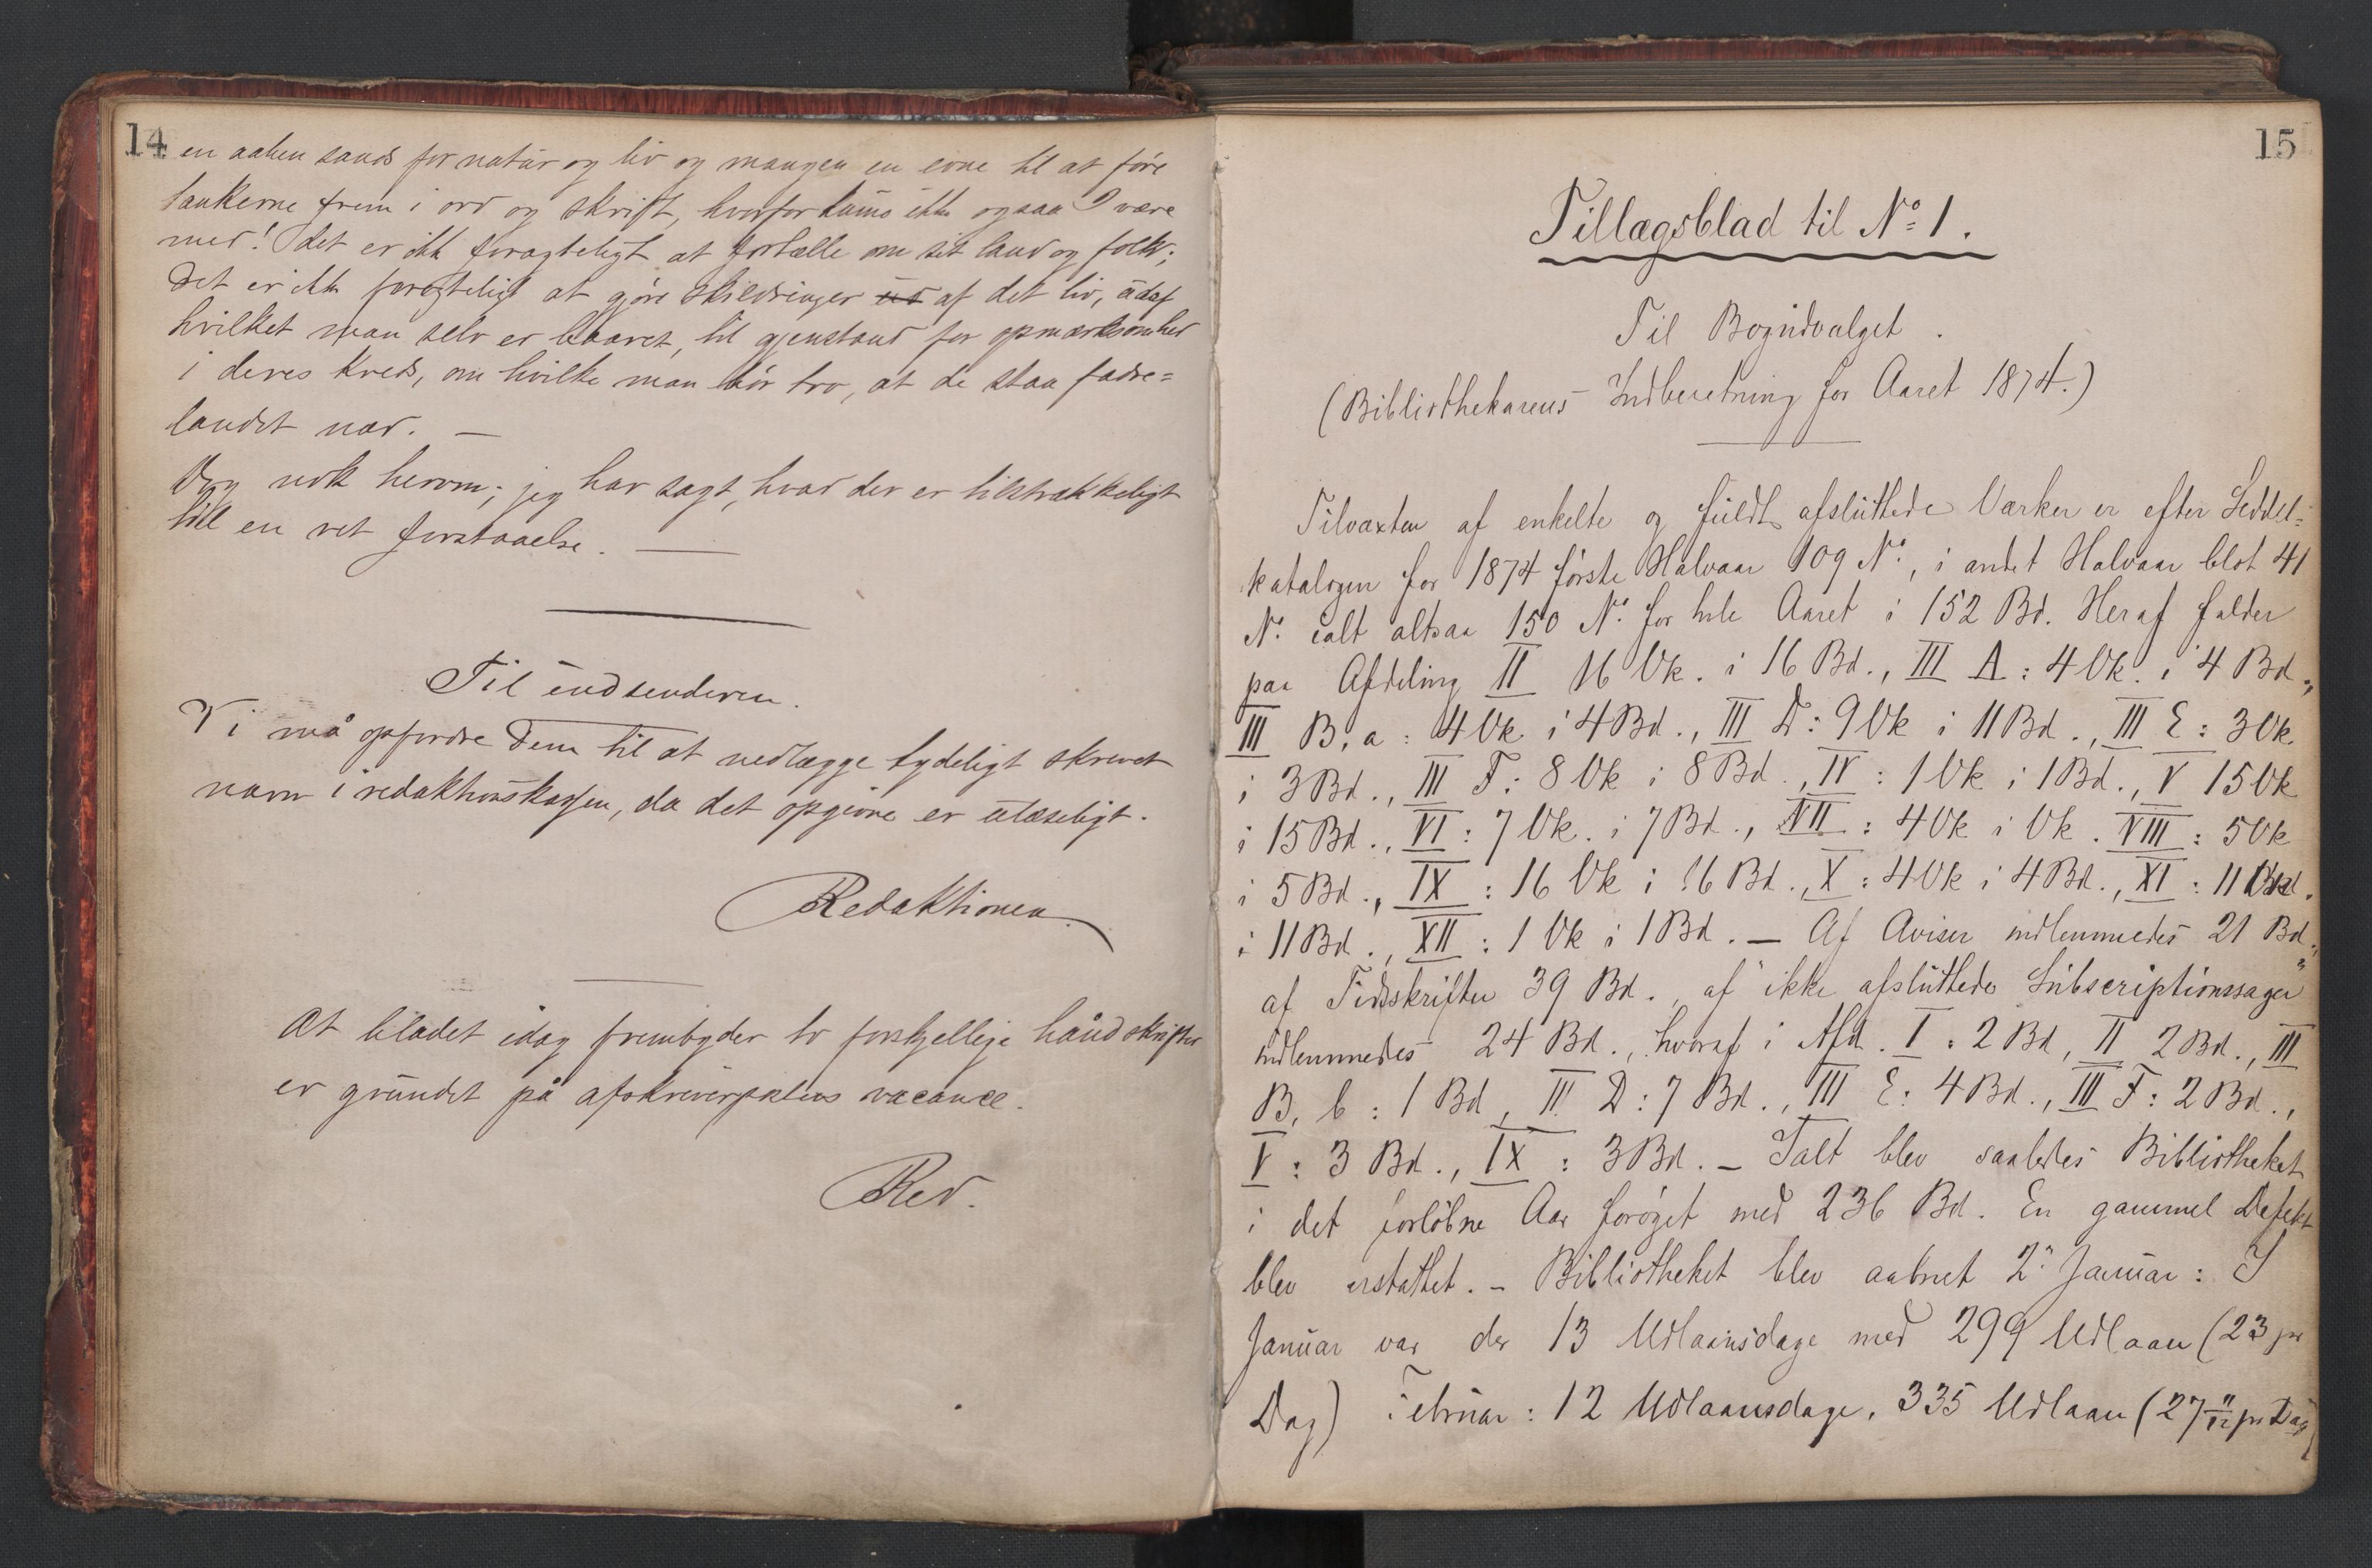 14
en aaben sands for natur og liv og mangen en evne til at føre
tankerne frem i ord og skrift, hvorfor kums ikke ogsaa I være
med! Det er ikk foragteligt at fortælle om sit land og folk;
Det er ikk foragteligt at gjøre skildringer ud af det liv, udaf
hvilket man selv er baaret, til gjenstand for opmærksomhed
i deres kreds, om hvilke man bör tro, at de staa fædre-
landet nær. —
Dog nok herom; jeg har sagt, hvad der er tilstrækkeligt
till en ret forstaaelse. —
Til indsenderen.
Vi må opfordre Dem til at nedlægge tydeligt skrevet
navn i redaktionskassen, da det opgivne er ulæseligt.
Redaktionen.
At bladet idag frembyder to forskjellige håndskrifter
er grundet på afskriverpostens vacance.
Red.
15
Tillægsblad til No 1.
Til Bogudvalget.
(Bibliothekarens Indberetning for Aaret 1874.)
Tilvæxten af enkelte og fuldt afsluttede Værker er efter Seddel-
katalogen for 1874 første Halvaar 109 No, i andet Halvaar blot 41
No. ialt altsaa 150 No. for hele Aaret i 152 Bd. Heraf falder
paa Afdeling II 16 Vk. i 16 Bd., III A: 4 Vk. i 4 Bd.,
III B, a: 4 Vk i 4 Bd., III D: 9 Vk i 11 Bd., III E: 3 Vk.
i 3 Bd., III F: 8 Vk i 8 Bd., IV: 1 Vk i 1 Bd., V 15 Vk
i 15 Bd., VI: 7 Vk. i 7 Bd., VII: 4 Vk i Vk. VIII: 5 Vk
i 5 Bd., IX: 16 Vk i 16 Bd., X: 4 Vk i 4 Bd., XI: 11 Vk.
i 11 Bd., XII: 1 Vk i 1 Bd. — Af Aviser indlemmedes 21 Bd.,
af Tidsskrifter 39 Bd., af "ikke afsluttede Subscriptionssager"
indlemmedes 24 Bd., hvoraf i Afd. I: 2 Bd, II 2 Bd., III
B, b: 1 Bd, III D: 7 Bd., III E: 4 Bd., III F: 2 Bd.,
V: 3 Bd., IX: 3 Bd. — Ialt blev saaledes Bibliotheket
i det forløbne Aar forøget med 236 Bd. En gammel Defekt
blev erstattet. — Bibliotheket blev aabnet 2n Januar: I
Januar var der 13 Udlaansdage med 299 Udlaan (23 pr
Dag) Februar: 12 Udlaansdage, 335 Udlaan (27 11/12 pr Dag)